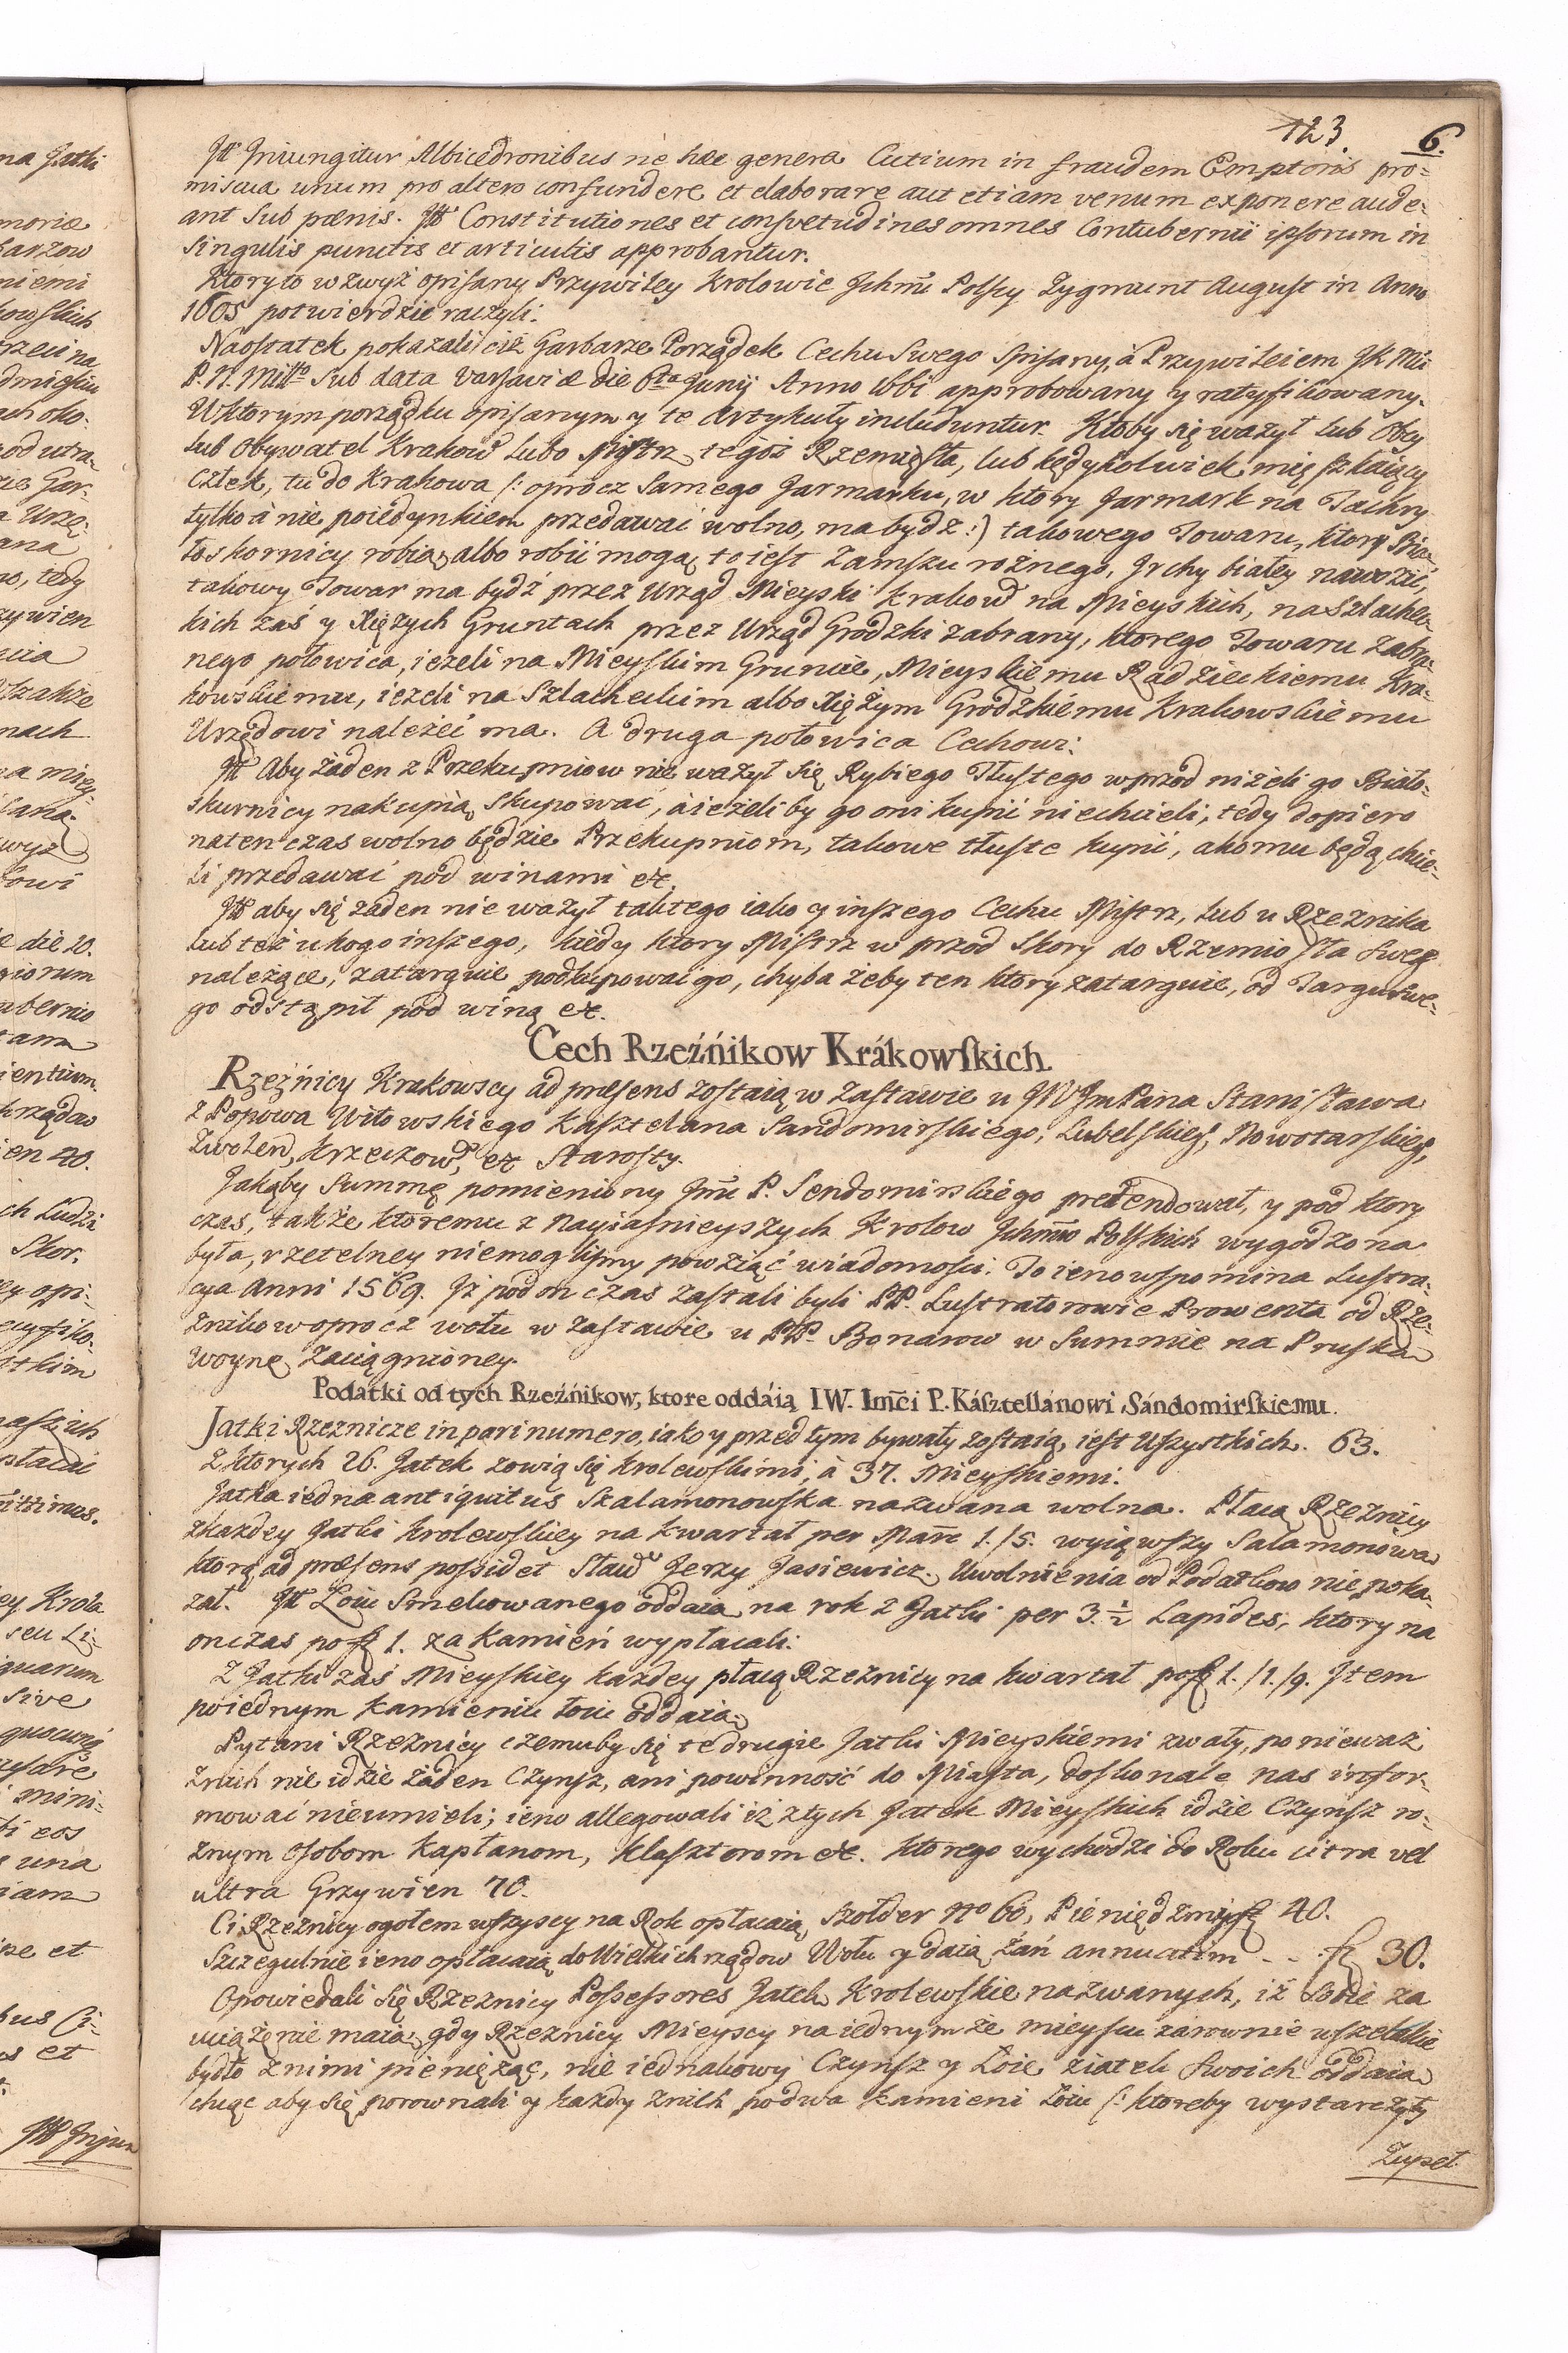 123. 6.
Itt Iniungitur Albicedronibus ne hae genera Cutium in fraudem Emptoris pro-
miscua unum pro altero confundere et elaborare aut etiam venum exponere aude-
ant sub pænis. Itt Constitutiones et consvetudines omnes Contubernii ipsorum in
singulis punctis et articulis approbantur.
Ktoryto wzwyż opisany Przywiley Krolowie Ichmć Polscy Zygmunt August in Anno
1605 potwierdzić raczyli.
Naostatek pokazali ciż Garbarze Porządek Cechu Swego Spisany, à Przywileiem JK Mći
P. N. Miłł° sub data Varsaviæ die 6ta Junij Anno 1661 approbowany y ratyfikowany.
Wktorym porządku opisanym y te Artykuły includuntur. Ktoby się ważył lub Obcy
lub Obywatel Krakow Lubo Mistrz tegoż Rzemięsła, lub kędykolwiek mięszkaiący
Człek, tu do Krakowa /: oprocz Samego Jarmarku, w ktory Jarmark na Tachry
tylko à nie poiedynkiem przedawać wolno, ma bydź :) takowego Towaru, ktory Bia-
łoskornicy robią, albo robić mogą, to iest Zamszu rożnego, Irchy białey nawozić,
takowy Towar ma bydź przez Urząd Mieyski Krakow na Mieyskich, na Szlachec-
kich zaś y Xiężych Gruntach przez Urząd Grodzki zabrany, ktorego Towaru zabra-
nego połowica, ieżeli na Mieyskim Gruncie, Mieyskiemu Radzieckiemu Kra-
kowskiemu, ieżeli na Szlacheckim albo Xiężym Grodzkiemu Krakowskiemu
Urzędowi należeć ma. A druga połowica Cechowi.
Itt Aby żaden z Przekupniow nie ważył się Rybiego Tłustego wprzod niżeli go Biało-
skurnicy nakupią, skupować, à ieżeliby go oni kupić niechcieli, tedy dopiero
natenczas wolno będzie Przekupniom, takowe tłuste kupić, akomu będą chcie-
li przedawać pod winami etc.
Itt aby się żaden nie ważył taktego iako y inszego Cechu Mistrz, Lub u Rzeznika
lub też ukogo inszego, kiedy ktory Mistrz w przod Skory do Rzemiosła sweg°
należące, zatarguie podkupować go, chyba żeby ten ktory zatarguie, od Targu swe-
go odstąpił pod winą etc.
Cech Rzeźńikow Krákowskich.
Rzeźnicy Krakowscy ad præsens zostaią w Zastawie u JW Im Pana Stanisława
z Popowa Witowskiego Kasztelana Sandomirskiego, Lubelskieg°, Nowotarskieg°,
Zwolen, Krzeczow, etc Starosty.
Jakąby Summę pomieniony Jmć P. Sendomirskiego prætendował, y pod ktory
czas, także ktoremu z Nayiasnieyszych Krolow Ichmciow Polskich wygodzona
była, rzetelney niemoglismy powziąć wiadomości. To ieno wspomina Lustra-
cya Anni 1569. Iż podonczas zastali byli PP. Lustratorowie Prowenta od Rze-
znikow oprocz wołu w zastawie u PP. Bonarow w Summie na Pruską
woynę zaciągnioney.
Podatki od tych Rzeźńikow, ktore oddáią IW. Imći P. Kásztellánowi Sándomirskiemu.
Jatki Rzeznicze in pari numero, iako y przed tym bywały zostaią, iest Wszystkich. 63.
Z ktorych 26. Jatek zowią się krolewskimi, à 37. Mieyskiemi.
Jatka iedna antiquitus Szalamonowska nazwana wolna. Płacą Rzeznicy
zkażdey Jatki Krolewskiey na kwartał per Marc 1./5. wyiąwszy Salamonową
ktorą ad præsens possidet Sław Jerzy Jasiewicz. Uwolnienia od Podatkow niepoka-
zał. Itt Łoiu Smelcowanego oddaią na rok z Jatki per 3. ½ Lapides, ktory na
onczas po fl 1. za Kamień wypłacali.
Z Jatki zaś Mieyskiey każdey płacą Rzeznicy na kwartał po fl 1./1./9. Item
poiednym kamieniu łoiu oddaią.
Pytani Rzeznicy czemuby się te drugie Jatki Mieyskiemi zwały, ponieważ
znich nie idzie żaden Czynsz, ani powinność do Miasta, doskonale nas infor-
mować nieumieli; ieno allegowali iż ztych Jatek Mieyskich idzie Czynsz ro-
znym osobom Kapłanom, Klasztorom etc. ktorego wychodzi do Roku citra vel
ultra Grzywien 70.
Ci Rzeznicy ogołem wszyscy na Rok opłacaią Szołder N° 60, Pieniędzmi fl 40.
Szczegulnie ieno opłacaią do Wielkich rządow Wołu y daią zań annuatim - - fl 30.
Opowiedali się Rzeznicy Possessores Jatek Krolewskie nazwanych, iż Sobie za
uciążęnie maią, gdy Rzeznicy Mieyscy na iednym że mieyscu zarownie wszelakie
bydło znimi pieniężąc, nie iednakowy Czynsz y Łoie ziatek Swoich oddaią
chcąc aby się porownali y każdy znich podwa Kamieni Łoiu /: ktoreby wystarczyły
Zupeł.